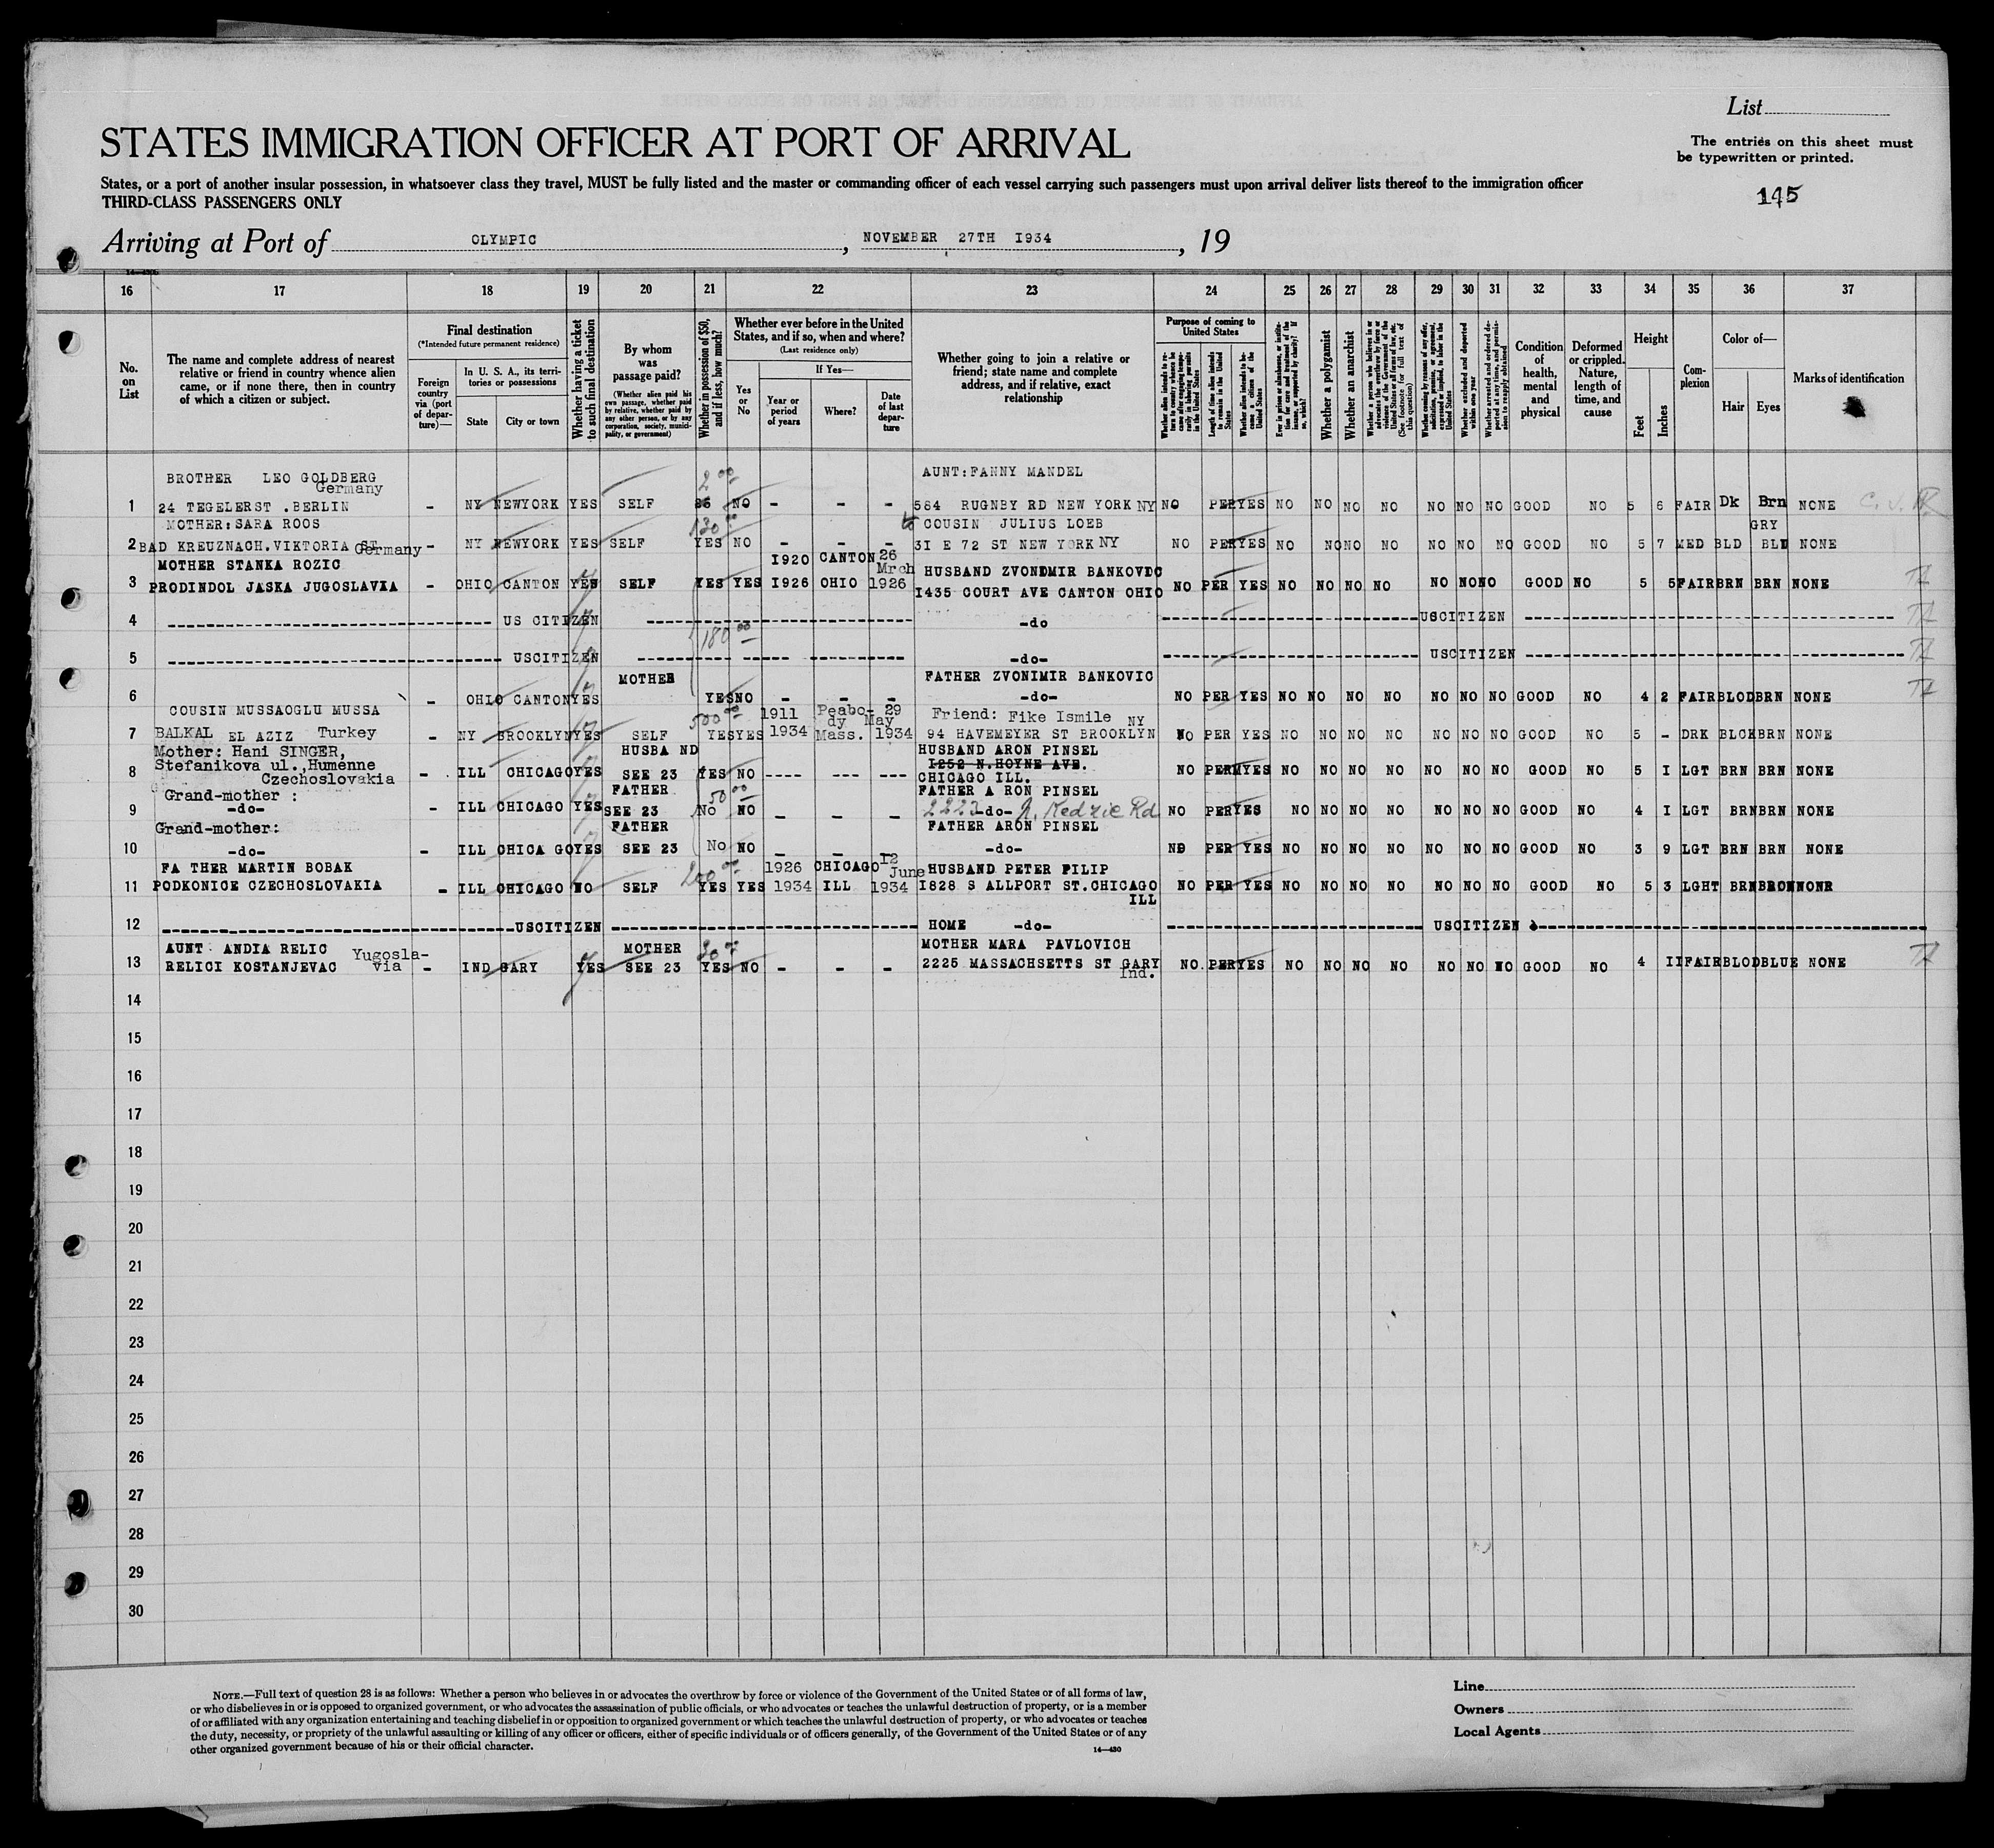 List
STATES IMMIGRATION OFFICER AT PORT OF ARRIVAL
The entries on this sheet must
be typewritten or printed.
States, or a port of another insular possession, in whatsoever class they travel, MUST be fully listed and the master or commanding officer of each vessel carrying such passengers must upon arrival deliver lists thereof to the immigration officer
THIRD-CLASS PASSENGERS ONLY
145
Arriving at Port of OLYMPIC, NOVEMBER 27TH I934, 19
16 17 18 19 20 21 22 23 24 25 26 27 28 29 30 31 32 33 34 35 36 37
No. on List
The name and complete address of nearest relative or friend in country whence alien came, or if none there, then in country of which a citizen or subject.
Final destination
(*Intended future permanent residence)
Foreign country via (port of departure)—
In U. S. A., its territories or possessions
State
City or town
Whether having a ticket to such final destination
By whom was passage paid?
(Whether alien paid his own passage, whether paid by relative, whether paid by any other person, or by any corporation, society, municipality, or government)
Whether in possession of $50, and if less, how much?
Whether ever before in the United States, and if so, when and where?
(Last residence only)
Yes or No
If Yes—
Year or period of years
Where?
Date of last departure
Whether going to join a relative or friend; state name and complete address, and if relative, exact relationship
Purpose of coming to United States
Whether a polygamist
Whether an anarchist
Condition of health, mental and physical
Deformed or crippled. Nature, length of time, and cause
Height
Feet
Inches
Complexion
Color of—
Hair
Eyes
Marks of identification
BROTHER LEO GOLDBERG AUNT:FANNY MANDEL
Germany
1 24 TEGELERST .BERLIN - NY NEWYORK YES SELF NO - - - 564 RUGNBY RD NEW YORK NY NO PER YES NO NO NO NO NO NO NO GOOD NO 5 6 FAIR Dk Brn NONE
MOTHER:SARA ROOS 130 COUSIN JULIUS LOEB GRY
2 BAD KREUZNACH.VIKTORIA ST Germany - NY NEWYORK YES SELF YES NO - - - 3I E 72 ST NEW YORK NY NO PER YES NO NO NO NO NO NO NO GOOD NO 5 7 MED BLD BLU NONE
MOTHER STANKA ROZIC I920 CANTON 26 Mrch HUSBAND ZVONIMIR BANKOVIC
3 PRODINDOL JASKA JUGOSLAVIA - OHIO CANTON YES SELF YES YES I926 OHIO 1926 I435 COURT AVE CANTON OHIO NO PER YES NO NO NO NO NO NO NO GOOD NO 5 5 FAIR BRN BRN NONE
4 US CITIZEN -do USCITIZEN
180 00
5 USCITIZEN -do- USCITIZEN
MOTHER FATHER ZVONIMIR BANKOVIC
6 - OHIO CANTON YES YES NO - - - -do- NO PER YES NO NO NO NO NO NO NO GOOD NO 4 2 FAIR BLOD BRN NONE
COUSIN MUSSAOGLU MUSSA 500 00 1911 Peabo- 29 Friend: Fike Ismile NY
dy May
7 BALKAL EL AZIZ Turkey - NY BROOKLYN YES SELF YES YES 1934 Mass. 1934 94 HAVEMEYER ST BROOKLYN NO PER YES NO NO NO NO NO NO NO GOOD NO 5 - DRK BLCK BRN NONE
Mother: Hani SINGER, HUSBA ND HUSBAND ARON PINSEL
Stefanikova ul.,Humenne I252 N.HOYNE AVE.
8 Czechoslovakia - ILL CHICAGO YES SEE 23 YES NO ---- --- --- CHICAGO ILL. NO PERM YES NO NO NO NO NO NO NO GOOD NO 5 I LGT BRN BRN NONE
Grand-mother : FATHER 50 00 FATHER A RON PINSEL
9 -do- - ILL CHICAGO YES SEE 23 No NO - - - 2222 -do- N. Kedzie Rd NO PER YES NO NO NO NO NO NO NO GOOD NO 4 I LGT BRN BRN NONE
Grand-mother: FATHER FATHER ARON PINSEL
10 -do- - ILL CHICA GO YES SEE 23 No NO - - - -do- NO PER YES NO NO NO NO NO NO NO GOOD NO 3 9 LGT BRN BRN NONE
FA THER MARTIN BOBAK 200 00 1926 CHICAGO I2 June HUSBAND PETER FILIP
11 PODKONICE CZECHOSLOVAKIA - ILL CHICAGO NO SELF YES YES 1934 ILL 1934 I828 S ALLPORT ST.CHICAGO NO PER YES NO NO NO NO NO NO NO GOOD NO 5 3 LGHT BRN BRON NONR
ILL
12 USCITIZEN HOME -do- USCITIZEN
AUNT ANDIA RELIC Yugosla- MOTHER MOTHER MARA PAVLOVICH
13 RELICI KOSTANJEVAC via - IND GARY YES SEE 23 YES NO - - - 2225 MASSACHSETTS ST GARY NO. PER YES NO NO NO NO NO NO NO GOOD NO 4 II FAIR BLOD BLUE NONE
Ind.
14
15
16
17
18
19
20
21
22
23
24
25
26
27
28
29
30
NOTE.—Full text of question 28 is as follows: Whether a person who believes in or advocates the overthrow by force or violence of the Government of the United States or of all forms of law,
or who disbelieves in or is opposed to organized government, or who advocates the assassination of public officials, or who advocates or teaches the unlawful destruction of property, or is a member
of or affiliated with any organization entertaining and teaching disbelief in or opposition to organized government or which teaches the unlawful destruction of property, or who advocates or teaches
the duty, necessity, or propriety of the unlawful assaulting or killing of any officer or officers, either of specific individuals or of officers generally, of the Government of the United States or of any
other organized government because of his or their official character.
14—430
Line
Owners
Local Agents